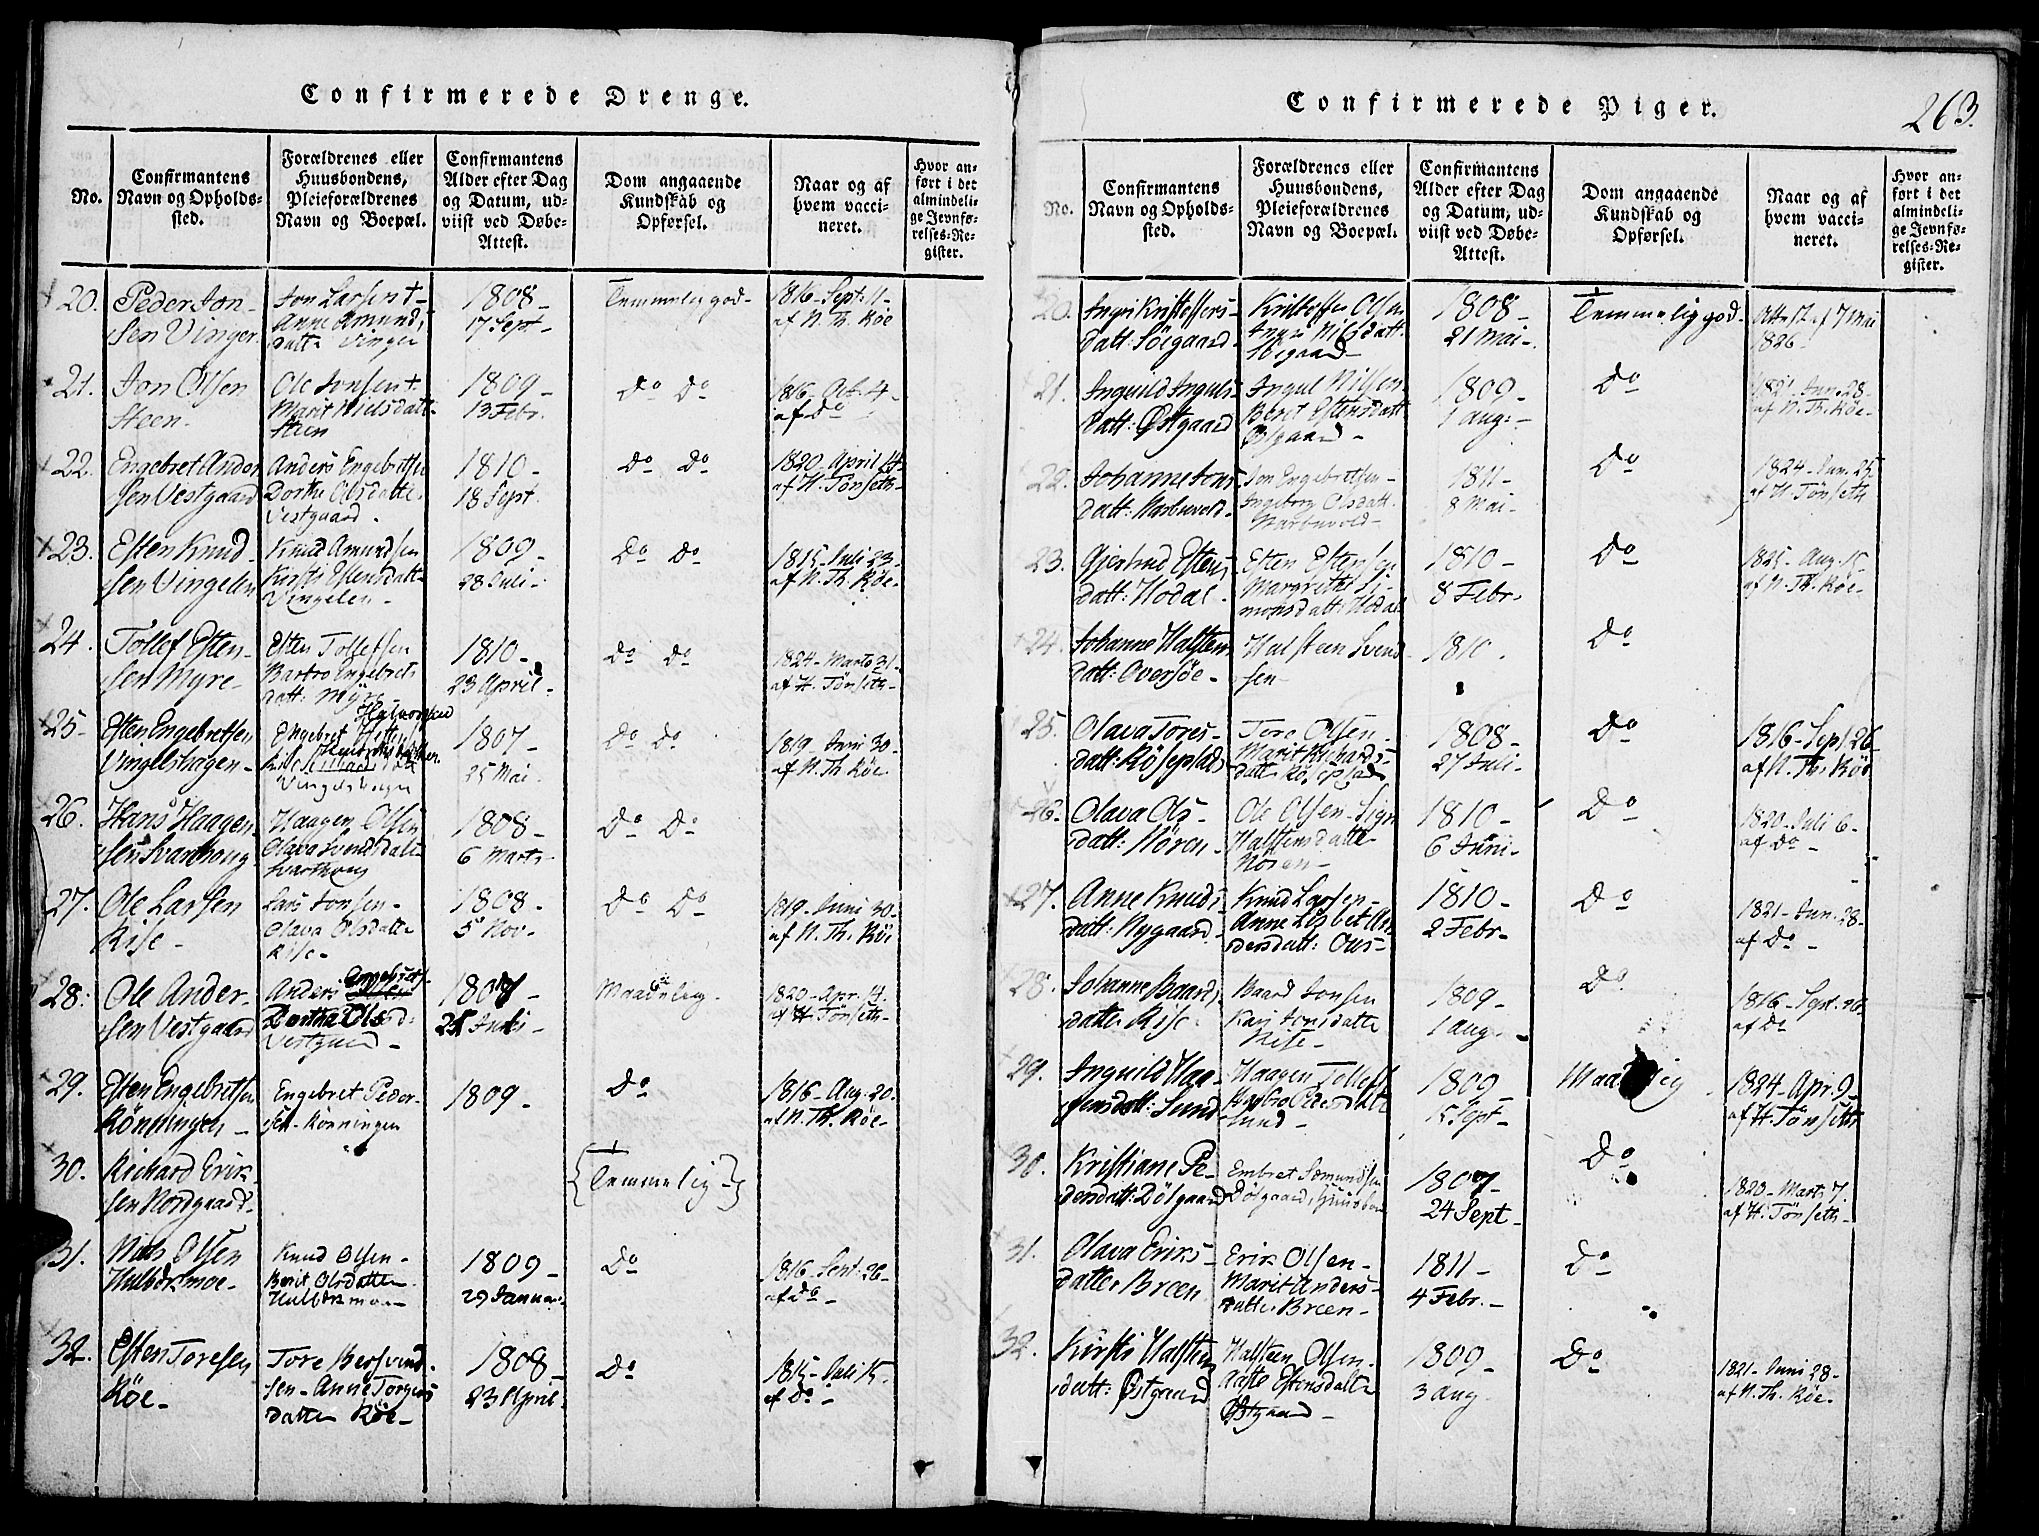 Confirmerede Drenge.
No.
Confirmantens
Navn og Opholds-
sted.
Forældrenes eller
Huusbondens,
Pleieforældrenes
Navn og Boepæl.
Confirmantens
Alder efter Dag
og Datum, ud-
viist ved Døbe-
Attest.
Dom angaaende
Kundskab og
Opførsel.
Naar og af
hvem vacci-
neret.
Hvor an-
ført i det
almindeli-
ge Jevnfø-
relses-Re-
gister.
20.
Peder Jon-
sen Vinger
Jon Larsen +
Anne Amunds
datt: Vinger
1808-
17 Sept-
Temmelig god-
1816-Sept: 11-
af N. Th. Röe
21.
Jon Olsen
Steen-
Ole Jonsen +
Marit Nielsdatt-
Steen
1809-
13 Febr.
Do Do
1816- Oct. 4-
af Do
22.
Engebret Ander
sen Vestgaard
Anders Engebretsen
Dorthe Olsdatte.
Vestgaard.
1810-
18 Sept.
Do Do
1820-April 14-
af H. Tönseth-
23.
Esten Knud-
sen Vingelen
Knud Amundsen
Kirsti Estensdatt-
Vingelen-
1809-
28 Juli-
Do Do
1815-Juli 23-
af N. Th. Röe-
24.
Tollef Esten-
sen Myre-
Esten Tollefsen
Barbro Engebrets
datt: Myre-
1810-
23 April-
Do Do
1824-Marts 31-
af H. Tönseth-
25-
Esten Engebretsen
Vingelshagen-
Engebret
Vingelshagen
1807-
25 Mai-
Do Do
1819-Juni 30-
af N. Th. Röe
26.
Hans Haagen-
sen Svarthaug
Haagen Olsen
Olava Svendsdatt
Svarthaug
1808-
6 Marts-
Do Do
27.
Ole Larsen
Rise-
Lars Jonsen-
Olava Olsdatte
Rise-
1808-
5 Nov-
Do Do
1819-Juni 30-
af N. Th. Röe
28.
Ole Ander-
sen Vestgaard
Anders Engebrets-
Dorthe Olsd-
Vestgaard-
1807-
Maadelig-
1820-Apr. 14.
af H. Tönseth-
29.
Esten Engebretsen
Rönningen-
Engebret Peder-
sen-Rönningen
1809-
Do
1816-Aug. 20.
af N. Th. Röe-
30.
Richard Erik-
sen Nordgaard-
{Temmelig-}
31.
Nils Olsen
Hulbækmoe-
Knud Olsen-
Berit Olsdatten-
Hulbækmoe-
1809-
29 Januar.
Do
1816-Sept-26-
af Do-
32.
Esten Toresen
Röe-
Tore Bersvend-
sen-Anne Torgers
datter Röe-
1808-
23 April.
Do
1815-Juli 15.
af Do-
Confirmerede Piger.
263.
No.
Confirmantens
Navn og Opholds-
sted.
Forældrenes eller
Huusbondens,
Pleieforældrenes
Navn og Boepæl.
Confirmantens
Alder efter Dag
og Datum, ud-
viist ved Døbe-
Attest.
Dom angaaende
Kundskab og
Opførsel.
Naar og af
hvem vacci-
neret.
Hvor an-
ført i det
almindeli-
ge Jevnfø-
relses-Re-
gister.
20.
Ingri Kristoffers-
datt: Söegaard-
Kristoffer Olsen
Ingri Nilsdatt:
Söegaard-
1808-
21 Mai-
Temmelig god-
Attest af 7 Mai
1826-
21.
Ingvild Inguls-
datt: Östgaard
Ingul Nilsen
Beret Estensdatt
Östgaard-
1809-
1 aug:-
Do
1821-Jun. 28-
af N. Th. Röe-
22.
Johanne Jons
datt: Narbuvold-
Jon Engebretsen-
Ingeborg Olsdatt.
Narbuvold-
1811-
8 Mai-
Do
1824-Jun. 25
af H. Tönseth
23.
Gjertrud Estens
datt: Hodal.
Esten Estensen
Margrethe Si-
monsdatt: Hodal
1810-
8 Febr.
Do
1825-Aug. 15-
af N. Th. Röe-
24.
Johanne Halsten
datt: Oversöe-
Halsteen Svend
sen-
1810.
Do
25.
Olava Tores-
datt: Rösepslad
Tore Olsen-
Marit Richards-
datt: Rösepslad
1808-
27 Juli-
Do
1816-Sept 26-
af N. Th. Röe
26.
Olava Ols-
datt: Nören-
Ole Olsen-Sign
Halstensdatte
Nören-
1810-
6 Juni-
Do
1820-Juli 6-
af Do-
27.
Anne Knuds-
datt: Nygaard-
Knud Larsen-
Anne Lisbet An
dersdatt: Ous-
1810-
2 Febr-
Do
1821-Jun. 28-
af Do-
28.
Johanne Baards
datter Rise-
Baard Jonsen
Kari Jonsdatte
Rise-
1809-
1 aug.-
Do
1816-Sept. 26.
af Do
29.
Ingvild Haa-
gensdatt: Sund
Haagen Tollefs
Barbro Pedersdatte
Sund-
1809-
15 Sept-
Maadelig
1824-Apr. 9-
af H. Tönseth
30.
Kristiane Pe-
dersdatt: Dölgaard
Embret Somundsen
Dölgaard, Huusbon
1807-
24 Sept-
Do
1823-Marts 7.
af H. Tönseth-
31.
Olava Eriks-
datter Breen
Erik Olsen-
Marit Anders-
datter Breen-
1811-
4 Febr.-
Do
32.
Kirsti Halsten
datt: Östgaard
Halsteen Olsen-
Aaste Estensdatte
Östgaard-
1809-
3 aug
Do
1821-Juni 28-
af N. Th. Röe-